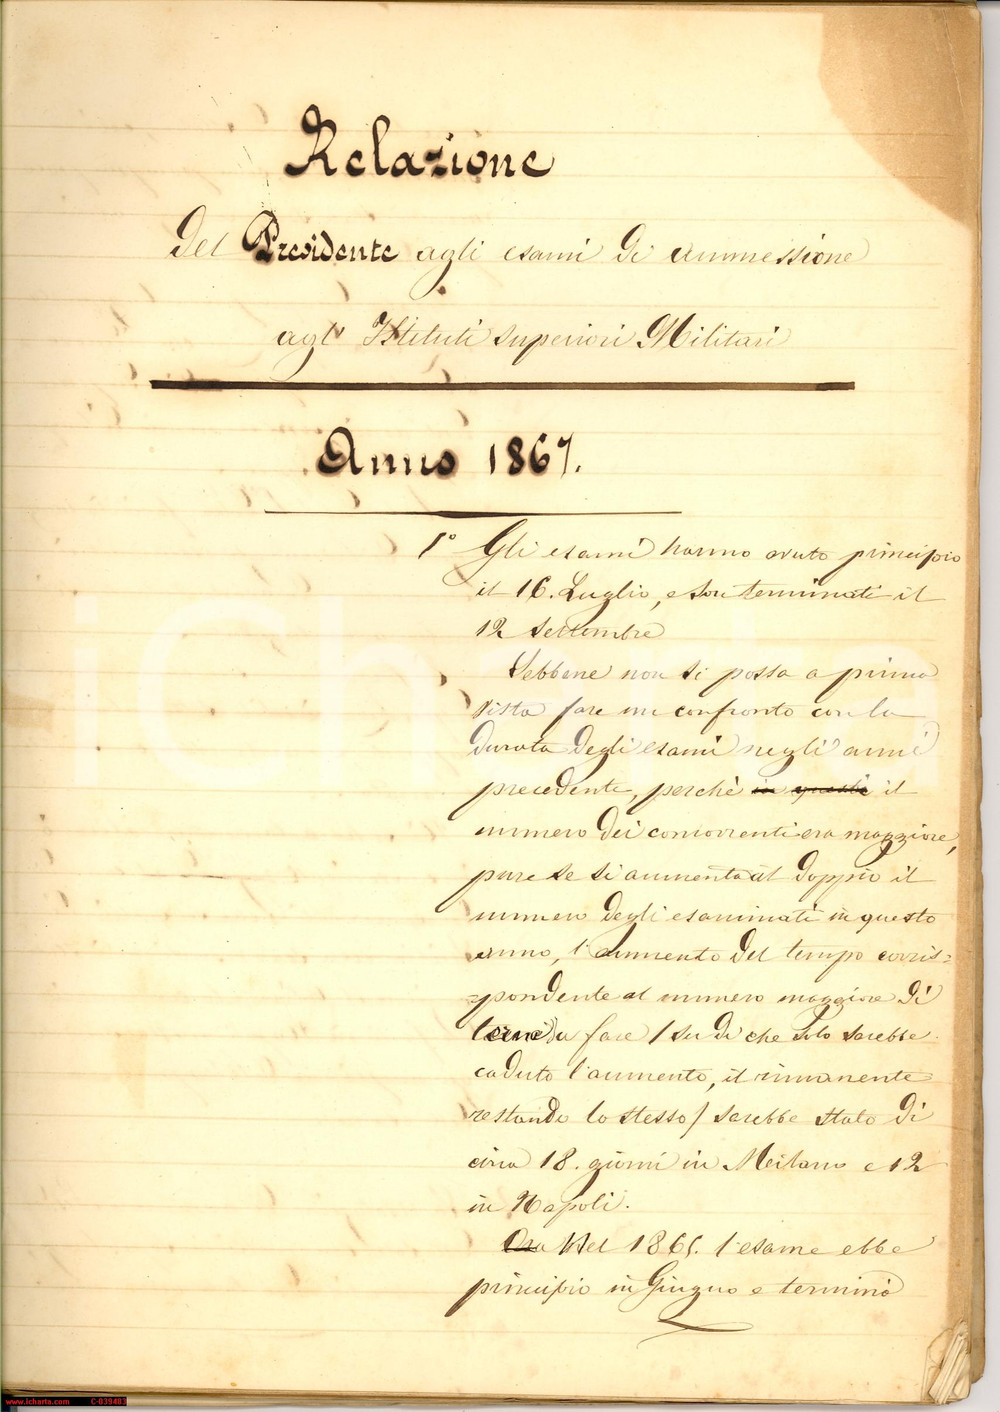 Relazione
Del Presidente agli esami di ammessione
agl' Istituti superiori Militari
Anno 1867.
1° Gli esami hanno avuto principio
il 16. Luglio, e son terminati il
12 settembre
Sebbene non si possa a prima
vista fare un confronto con la
durata degli esami negli anni
precedenti, perchè in questi il
numero dei concorrenti era maggiore,
pure se si aumenta al doppio il
numero degli esaminati in questo
anno, l'aumento del tempo corris=
=pondente al numero maggiore di
da fare / su di che solo sarebbe
caduto l'aumento, il rimanente
restando lo stesso / sarebbe stato di
circa 18. giorni in Milano e 12
in Napoli.
Ora Nel 1865. l'esame ebbe
principio in Giugno e terminò
iCharta
www.icharta.com C-039483